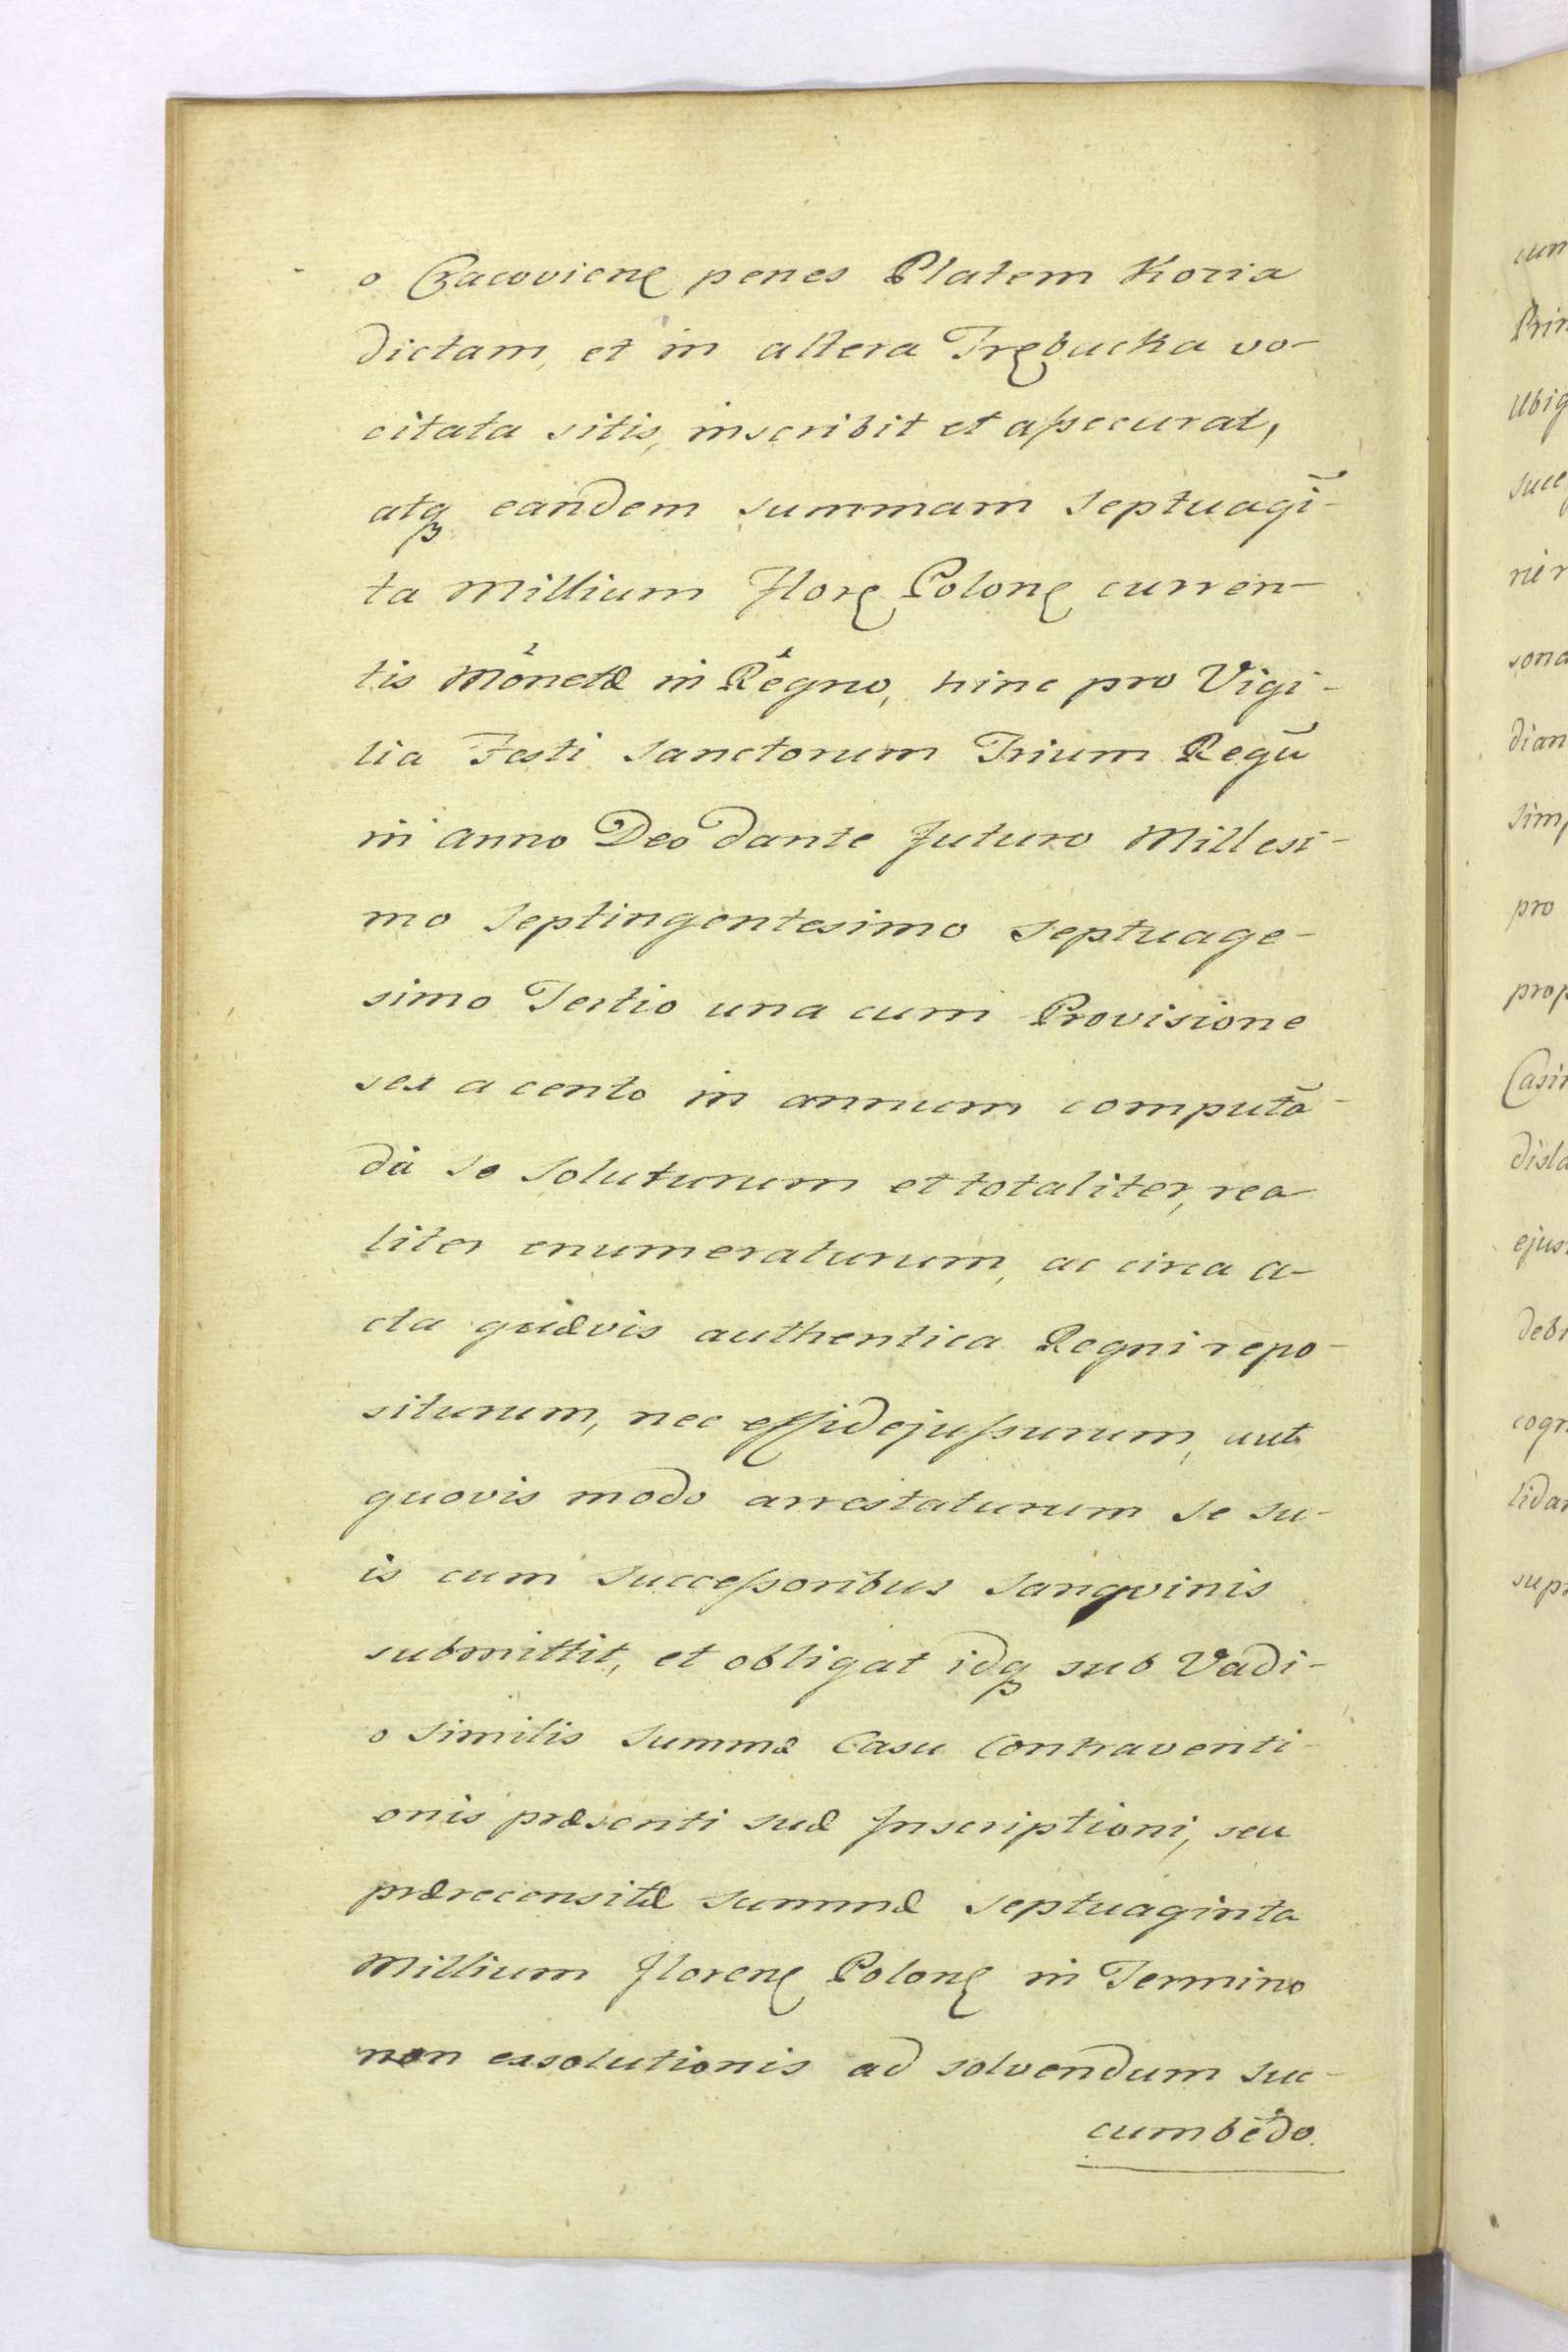 o Cracovienę penes Platem Kozia
dictam, et in altera Trębacka vo-
citata sitis, inscribit et aſsecurat,
atqꝫ eandem summam Septuagī-
ta Millium Florę Polonę curren-
tis Monetæ in Regno, hinc pro Vigi-
lia Festi Sanctorum Trium Regū
in anno Deo dante futuro Millesi-
mo Septingentesimo Septuage-
simo Tertio una cum Provisione
sex a cento in annum computā-
da se soluturum et totaliter, rea
liter enumeraturum, ac circa A-
cta quævis authentica Regni repo-
siturum, nec effidejuſsurum, aut
quovis modo arrestaturum se su-
is cum Succeſsoribus Sangvinis
submittit, et obligat idqꝫ sub Vadi-
o Similis Summæ Casu Contraventi-
onis præsenti suæ Inscriptioni, seu
prærecensitæ Summæ Septuaginta
Millium Florenę Polonę in Termino
non exsolutionis ad solvendum suc-
cumbēdo.
cum
Prin
Ubiq
suce
rier
sona
dian
simp
pro
prop
Casin
disla
ejus
deb
cogn
lidar
supr